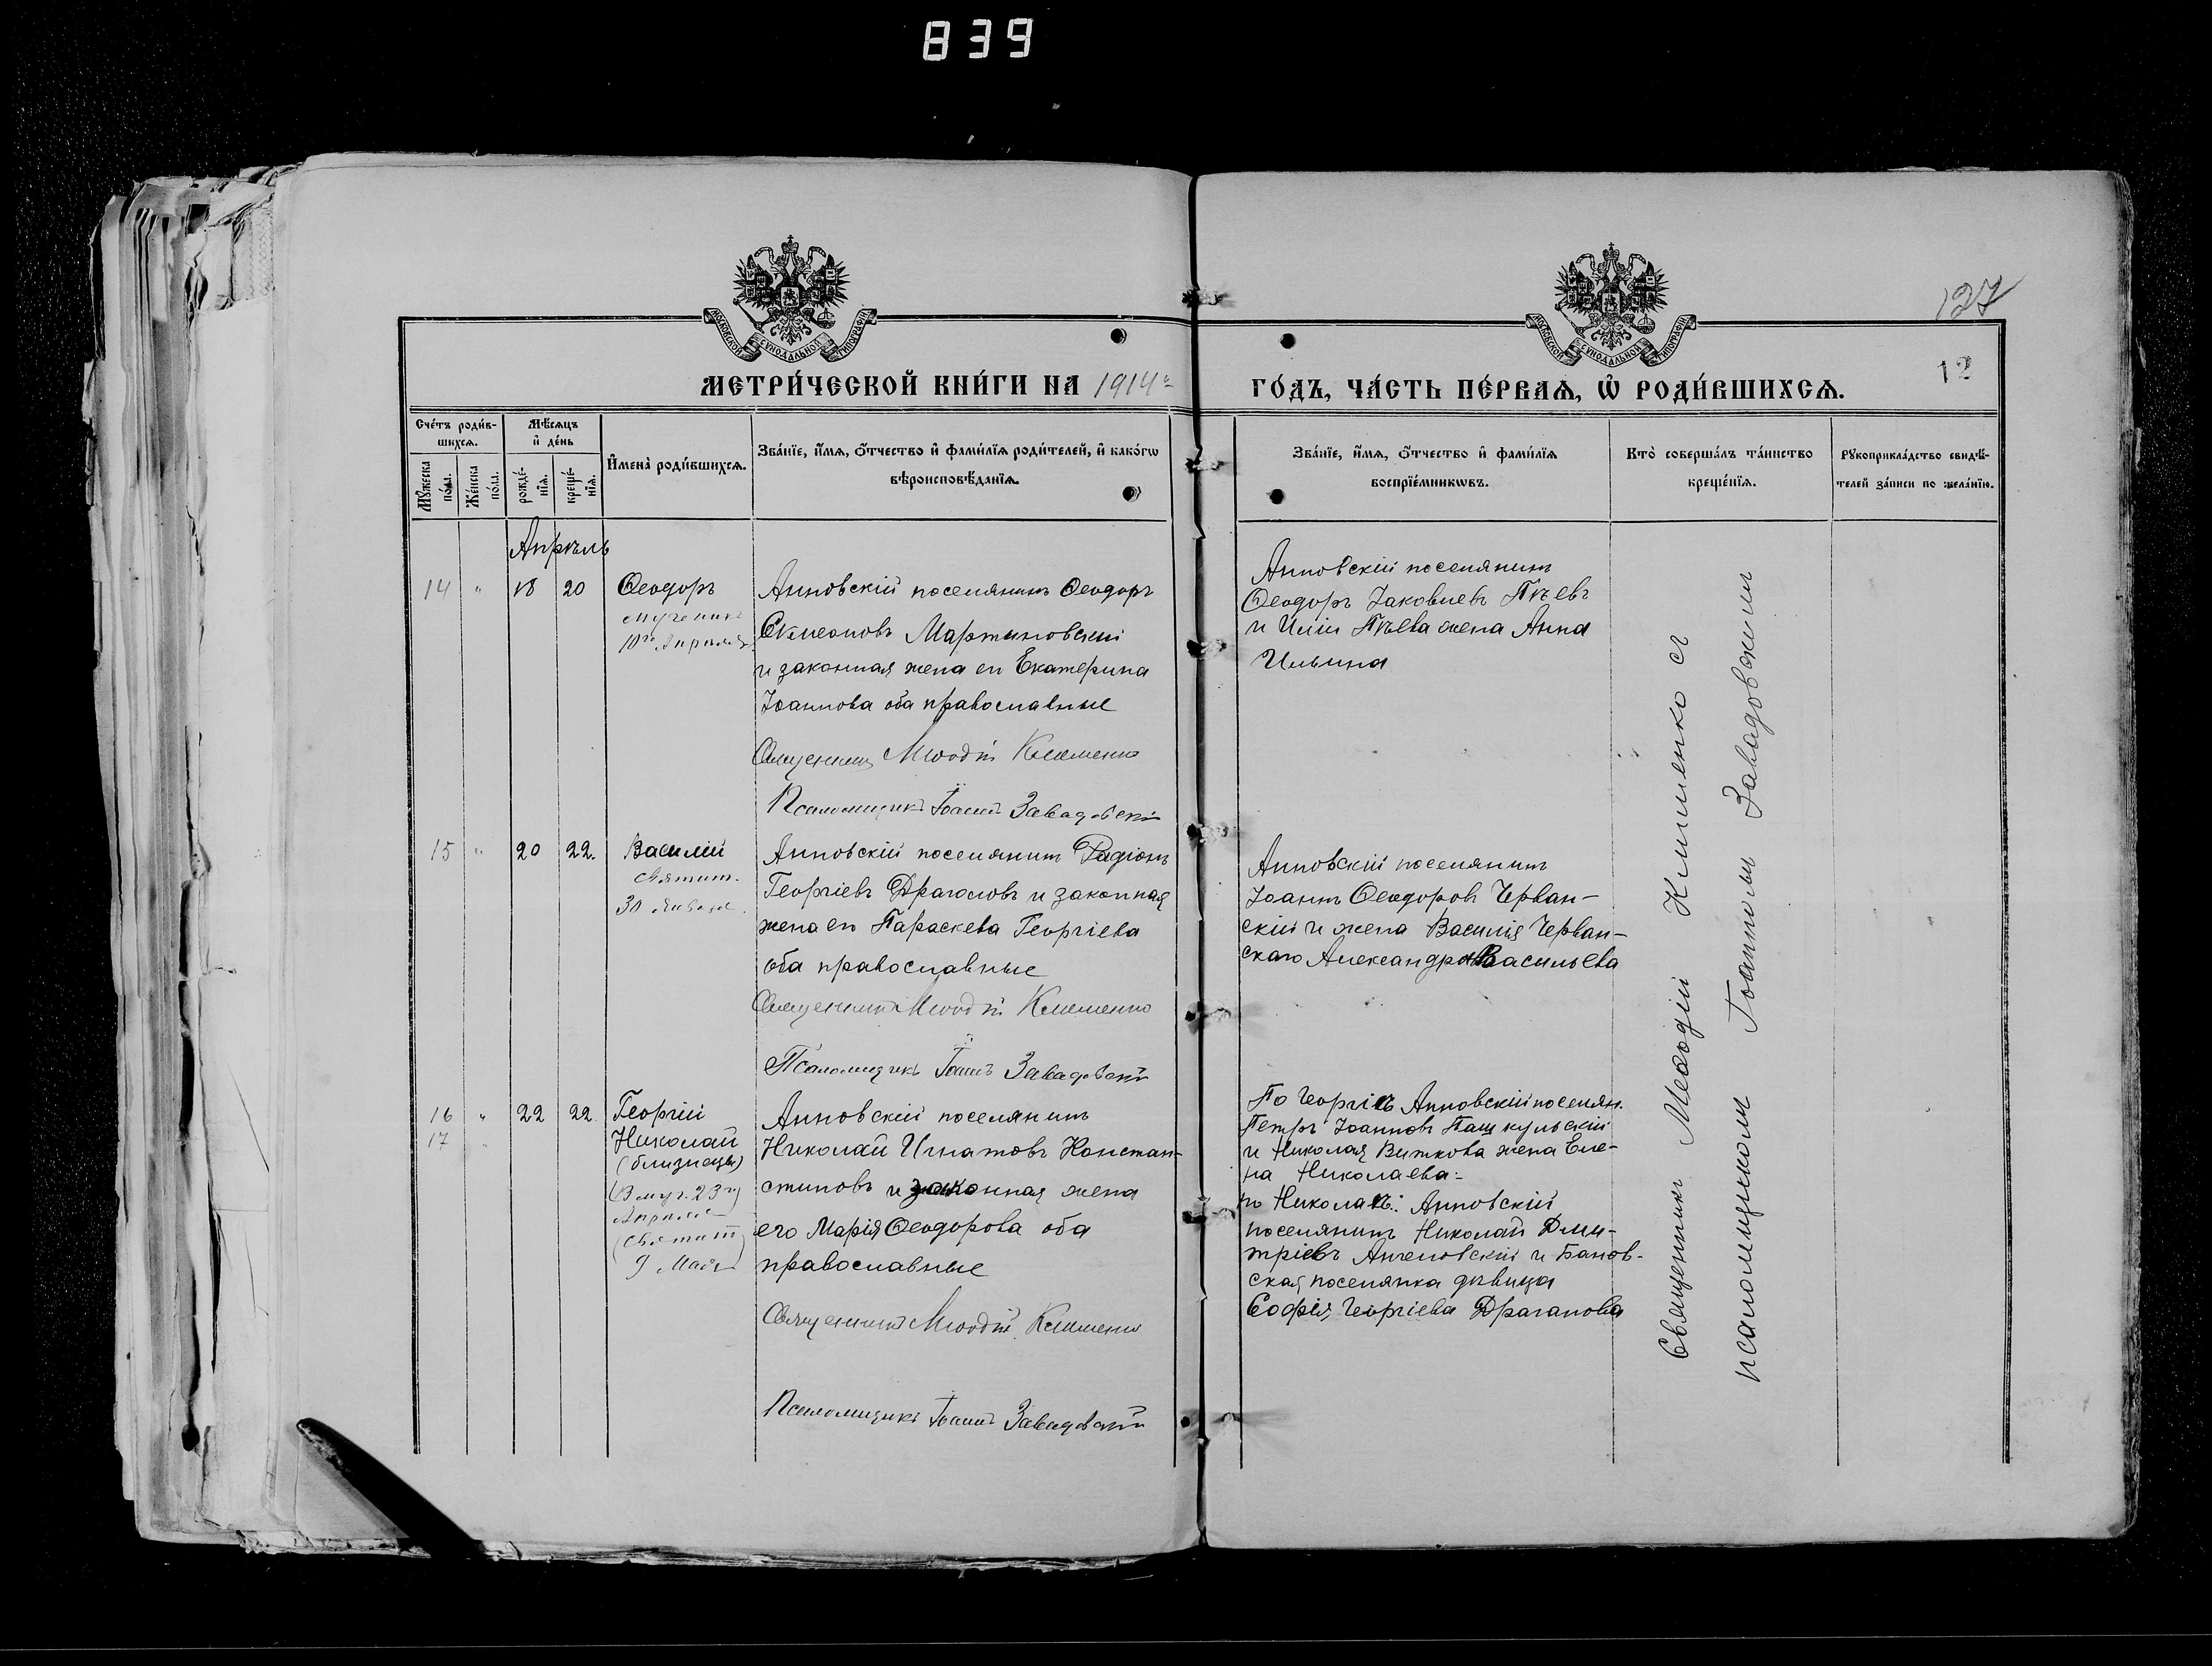 839
127
12
МОСКОВСКОЙ СѴНОДАЛЬНОЙ ТИПОГРАФІИ
МОСКОВСКОЙ СѴНОДАЛЬНОЙ ТИПОГРАФІИ
МЕТРИ́ЧЕСКОЙ КНИ́ГИ НА 1914 г
ГО́ДЪ, ЧА́СТЬ ПЕ́РВАѦ, Ѡ҆ РОДИ́ВШИХСѦ.
Сче́тъ роди́в-
шихсѧ.
Мꙋ́жеска по́ла.
Же́нска по́ла.
Мѣ́сѧцъ
и҆ де́нь
рожде́-нїѧ.
креще́-нїѧ.
И҆мена̀ роди́вшихсѧ.
Зва́нїе, и҆́мѧ, ѻ҆́тчество и҆ фами́лїѧ роди́телей, и҆ како́гѡ
вѣроисповѣ́данїѧ.
Зва́нїе, и҆́мѧ, ѻ҆́тчество и҆ фами́лїѧ
воспрїе́мникѡвъ.
Кто̀ соверша́лъ та́инство
креще́нїѧ.
Рꙋкоприкла́дство свидѣ́-
телей за́писи по жела́нїю.
Апрѣль
14 " 18 20 Ѳеодоръ
мученикъ
Анновскій поселянинъ Ѳеодоръ
Симеоновъ Мартиновскій
и законная жена ег Екатерина
Іоаннова оба православные
Священникъ Меѳодій Клименко
Псаломщикъ Іоаннъ Завадовскій
Анновскій поселянинъ
Ѳеодоръ Іаковлевъ
и Иліи жена Анна
Ильина
15 " 20 22. Василій
святит.
30 Января.
Анновскій поселянинъ Радіонъ
Георгіевъ Драгановъ и законная
жена ег Параскева Георгіева
оба православные
Священникъ Меѳодій Клименко
Псаломщикъ Іоаннъ Завадовскій
Анновскій поселянинъ
Іоаннъ Ѳеодоровъ Черван-
скій и жена Василія Черван-
скаго Александра Васильева
16 " 22 22 Георгій
17 " Николай
(близнецы)
(В муч. 23го
Апрѣля
(Святит)
9 Мая
Анновскій поселянинъ
Николай Игнатовъ Констан-
тиновъ и законная жена
его Марія Ѳеодорова оба
православные
Священникъ Меѳодій Клименко
Псаломщикъ Іоаннъ Завадовскій
По Георгіѣ Анновскій поселян.
Петръ Іоанновъ Пашкульскій
и Николая Виткова жена Еле-
на Николаева:
по Николаѣ: Анновскій
поселянинъ Николай Дми-
тріевъ Ангеловскій и Банов-
ская поселянка дѣвица
Софія Георгіева Драганова
Священникъ Меѳодій Клименко съ
псаломщикомъ Іоанномъ Завадовскимъ